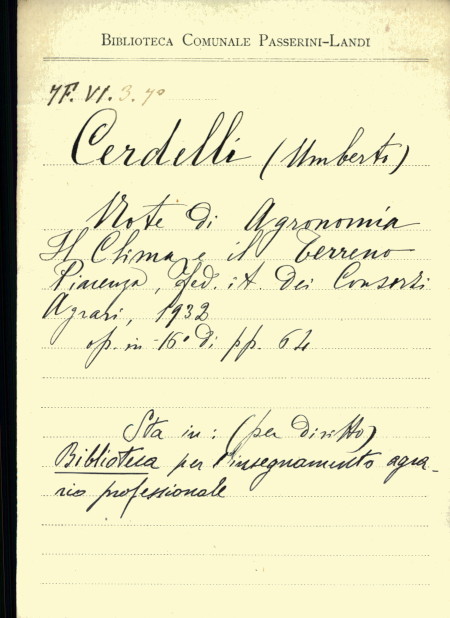 BIBLIOTECA COMUNALE PASSERINI-LANDI
7F. VI. 3. 70
Cerdelli (Umberto)
Note di Agronomia
Il Clima e il Terreno
Piacenza, Fed. it. dei Consorzi
Agrari, 1932
op. in -16° di pp. 64
Sta in: (per diritto)
Biblioteca per l'insegnamento agra-
rio professionale